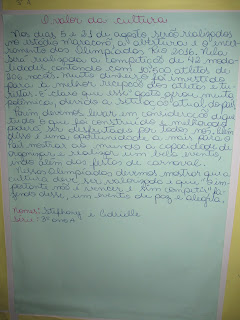 O valor da cultura
Nos dias 5 e 21 de agosto serão realizadas
no estádio Maracanã, a abertura e o encer-
ramento das Olimpíadas Rio 2016. Nele
será realizada a competição de 42 moda-
lidades, contando com 10.500 atletas de
206 países. muito dinheiro foi investido
para a melhor recepção dos atletas e tu-
ristas. É claro que esse gasto gerou muita
polêmica, devido a situação atual do país.
Porém devemos levar em consideração q que
tudo o que foi construído e melhorado
poderá ser desfrutado por todos nós, além
disso é uma oportunidade a mais para o
mostrar ao mundo a capacidade de
organizar e realizar um belo evento,
indo além das festas de carnaval.
Nessas Olimpíadas devemos mostrar que a
cultura deve ser valorizada e que "o im-
portante não é vencer e sim competir", fa-
zendo disso, um evento de paz e alegria.
Nomes: Stefhany e Gabrielle
Série: 8º ano A